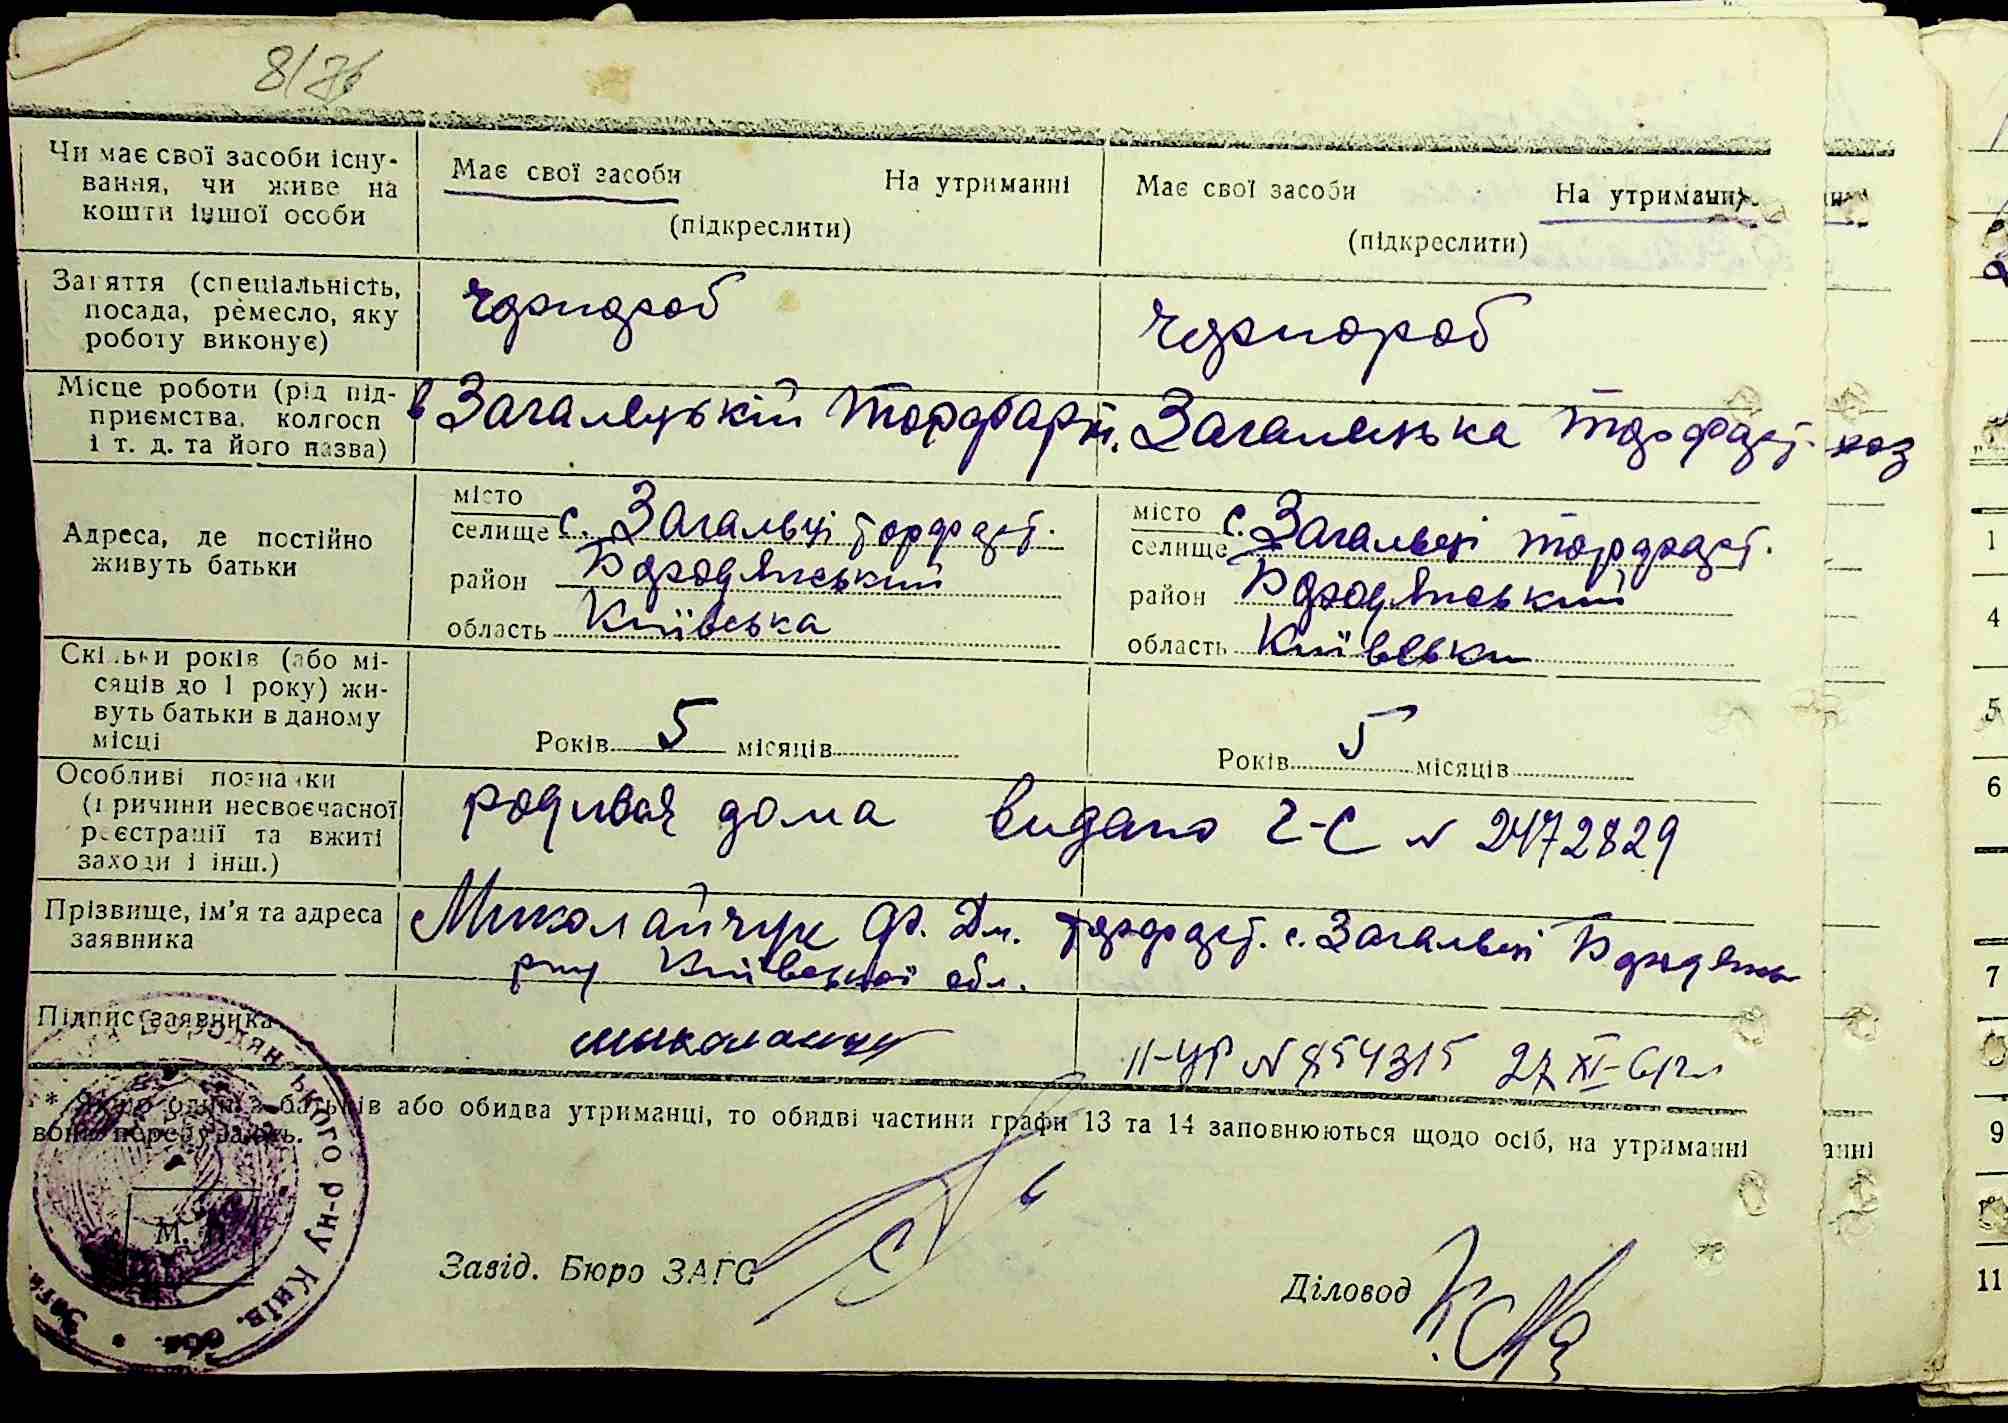 8/76
Чи має свої засоби існу-
вання, чи живе на
кошти іншої особи
Має свої засоби На утриманні
(підкреслити)
Має свої засоби На утриманні
(підкреслити)
Заняття (спеціальність,
посада, ремесло, яку
роботу виконує)
чорнороб
чорнороб
Місце роботи (рід під-
приємства, колгосп
і т. д. та його назва)
в Загалецькій
Загалецька
Адреса, де постійно
живуть батьки
місто
селище с. Загальці торфдст.
район Бородянський
область Київська
місто
селище с. Загальці торфдст.
район Бородянський
область Київська
Скільки років (або мі-
сяців до 1 року) жи-
вуть батьки в даному
місці
Років 5 місяців
Років 5 місяців
Особливі познаки
(причини несвоєчасної
реєстрації та вжиті
заходи і інш.)
дома видано 2-С № 2472829
Прізвище, ім'я та адреса
заявника
Миколайчук Ф. Дм. торфдст. с. Загальці Бородянськ
р-ну Київської обл.
Підпис заявника
II-УР № 854315 27 XI-61
* Якщо один з батьків або обидва утриманці, то обидві частини графи 13 та 14 заповнюються щодо осіб, на утриманні
вони перебувають.
М. П.
Бородянського р-ну Київ. обл.
Завід. Бюро ЗАГС
Діловод
1
4
5
6
7
9
11